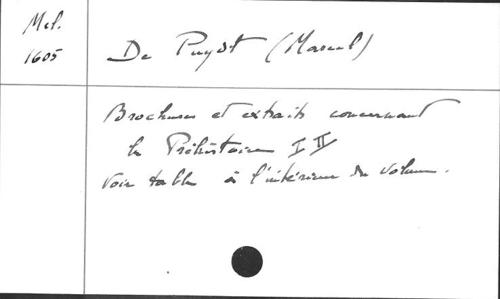 Mel.
1605
De Puydt (Marcel)
Brochures et extraits concernant
la Préhistoire I II
voir table à l'intérieur du volume.